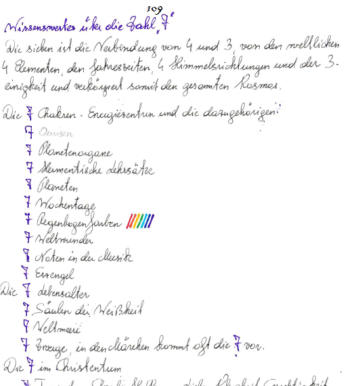 109
Wissenswertes über die Zahl „7“
Die sieben ist die Verbindung von 4 und 3, von den weltlichen
4 Elementen, den Jahreszeiten, 4 Himmelsrichtungen und der 3-
einigkeit und verkörpert somit den gesamten Kosmos.
Die 7 Chakren - Energiezentren und die dazugehörigen:
7
7 Planetenorgane
7 Hermetische Lehrsätze
7 Planeten
7 Wochentage
7 Regenbogenfarben
7 Weltwunder
7 Noten in der Musik
7 Erzengel
Die 7 Lebensalter
7 Säulen der Weißheit
7 Weltmeere
7 Zwerge, in den Märchen kommt oft die 7 vor.
Die 7 im Christentum